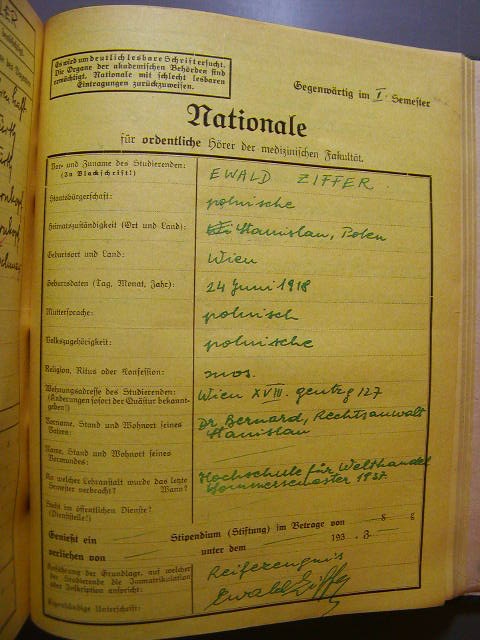 Es wird um deutlich lesbare Schrift ersucht.
Die Organe der akademischen Behörden sind
ermächtigt, Nationale mit schlecht lesbaren
Eintragungen zurückzuweisen.
Gegenwärtig im I. Semester
Nationale
für ordentliche Hörer der medizinischen Fakultät.
Vor- und Zuname des Studierenden: EWALD ZIFFER
(In Blockschrift!)
Staatsbürgerschaft: polnische
Heimatzuständigkeit (Ort und Land): Stanislau, Polen
Geburtsort und Land: Wien
Geburtsdaten (Tag, Monat, Jahr): 24 Juni 1918
Muttersprache: polnisch
Volkszugehörigkeit: polnische
Religion, Ritus oder Konfession: mos.
Wohnungsadresse des Studierenden: Wien XVIII. gentzg 127
(Änderungen sofort der Quästur bekannt-
geben!)
Vorname, Stand und Wohnort seines Dr Bernard, Rechtsanwalt
Vaters: Stanislau
Name, Stand und Wohnort seines
Vormundes:
An welcher Lehranstalt wurde das letzte Hochschule für Welthandel
Semester verbracht? Wann? Sommersemester 1937.
Steht im öffentlichen Dienste?
(Dienststelle!)
Genießt ein Stipendium (Stiftung) im Betrage von S g
verliehen von unter dem 193 3.
Anführung der Grundlage, auf welcher Reifezeugnis
der Studierende die Immatrikulation
oder Inskription anspricht:
Eigenhändige Unterschrift: Ewald Ziffer